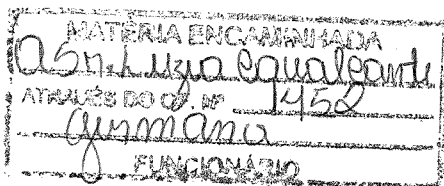 MATÉRIA ENCAMINHADA
A Sr. Luzia Cavalcante
ATRAVÉS DO OF. Nº 1452
FUNCIONÁRIO